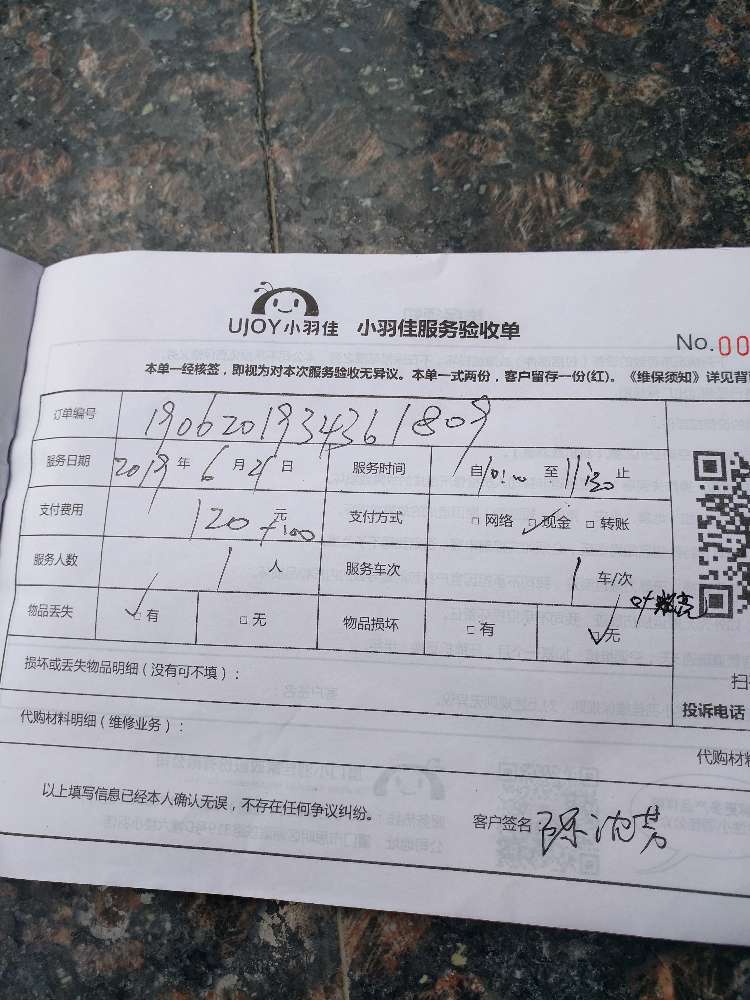 UJOY小羽佳 小羽佳服务验收单
No.00
本单一经核签，即视为对本次服务验收无异议。本单一式两份，客户留存一份(红)。《维保须知》详见背
订单编号 1906201934361809
服务日期 2019 年 6 月 21 日 服务时间 自10:00 至 11:30 止
支付费用 120 元 +100 支付方式 □网络 ☑现金 □转账
服务人数 1 人 服务车次 1 车/次
物品丢失 ☑有 □无 物品损坏 □有 ☑无
损坏或丢失物品明细（没有可不填）：
扫
投诉电话
代购材料明细（维修业务）：
代购材
以上填写信息已经本人确认无误，不存在任何争议纠纷。
客户签名